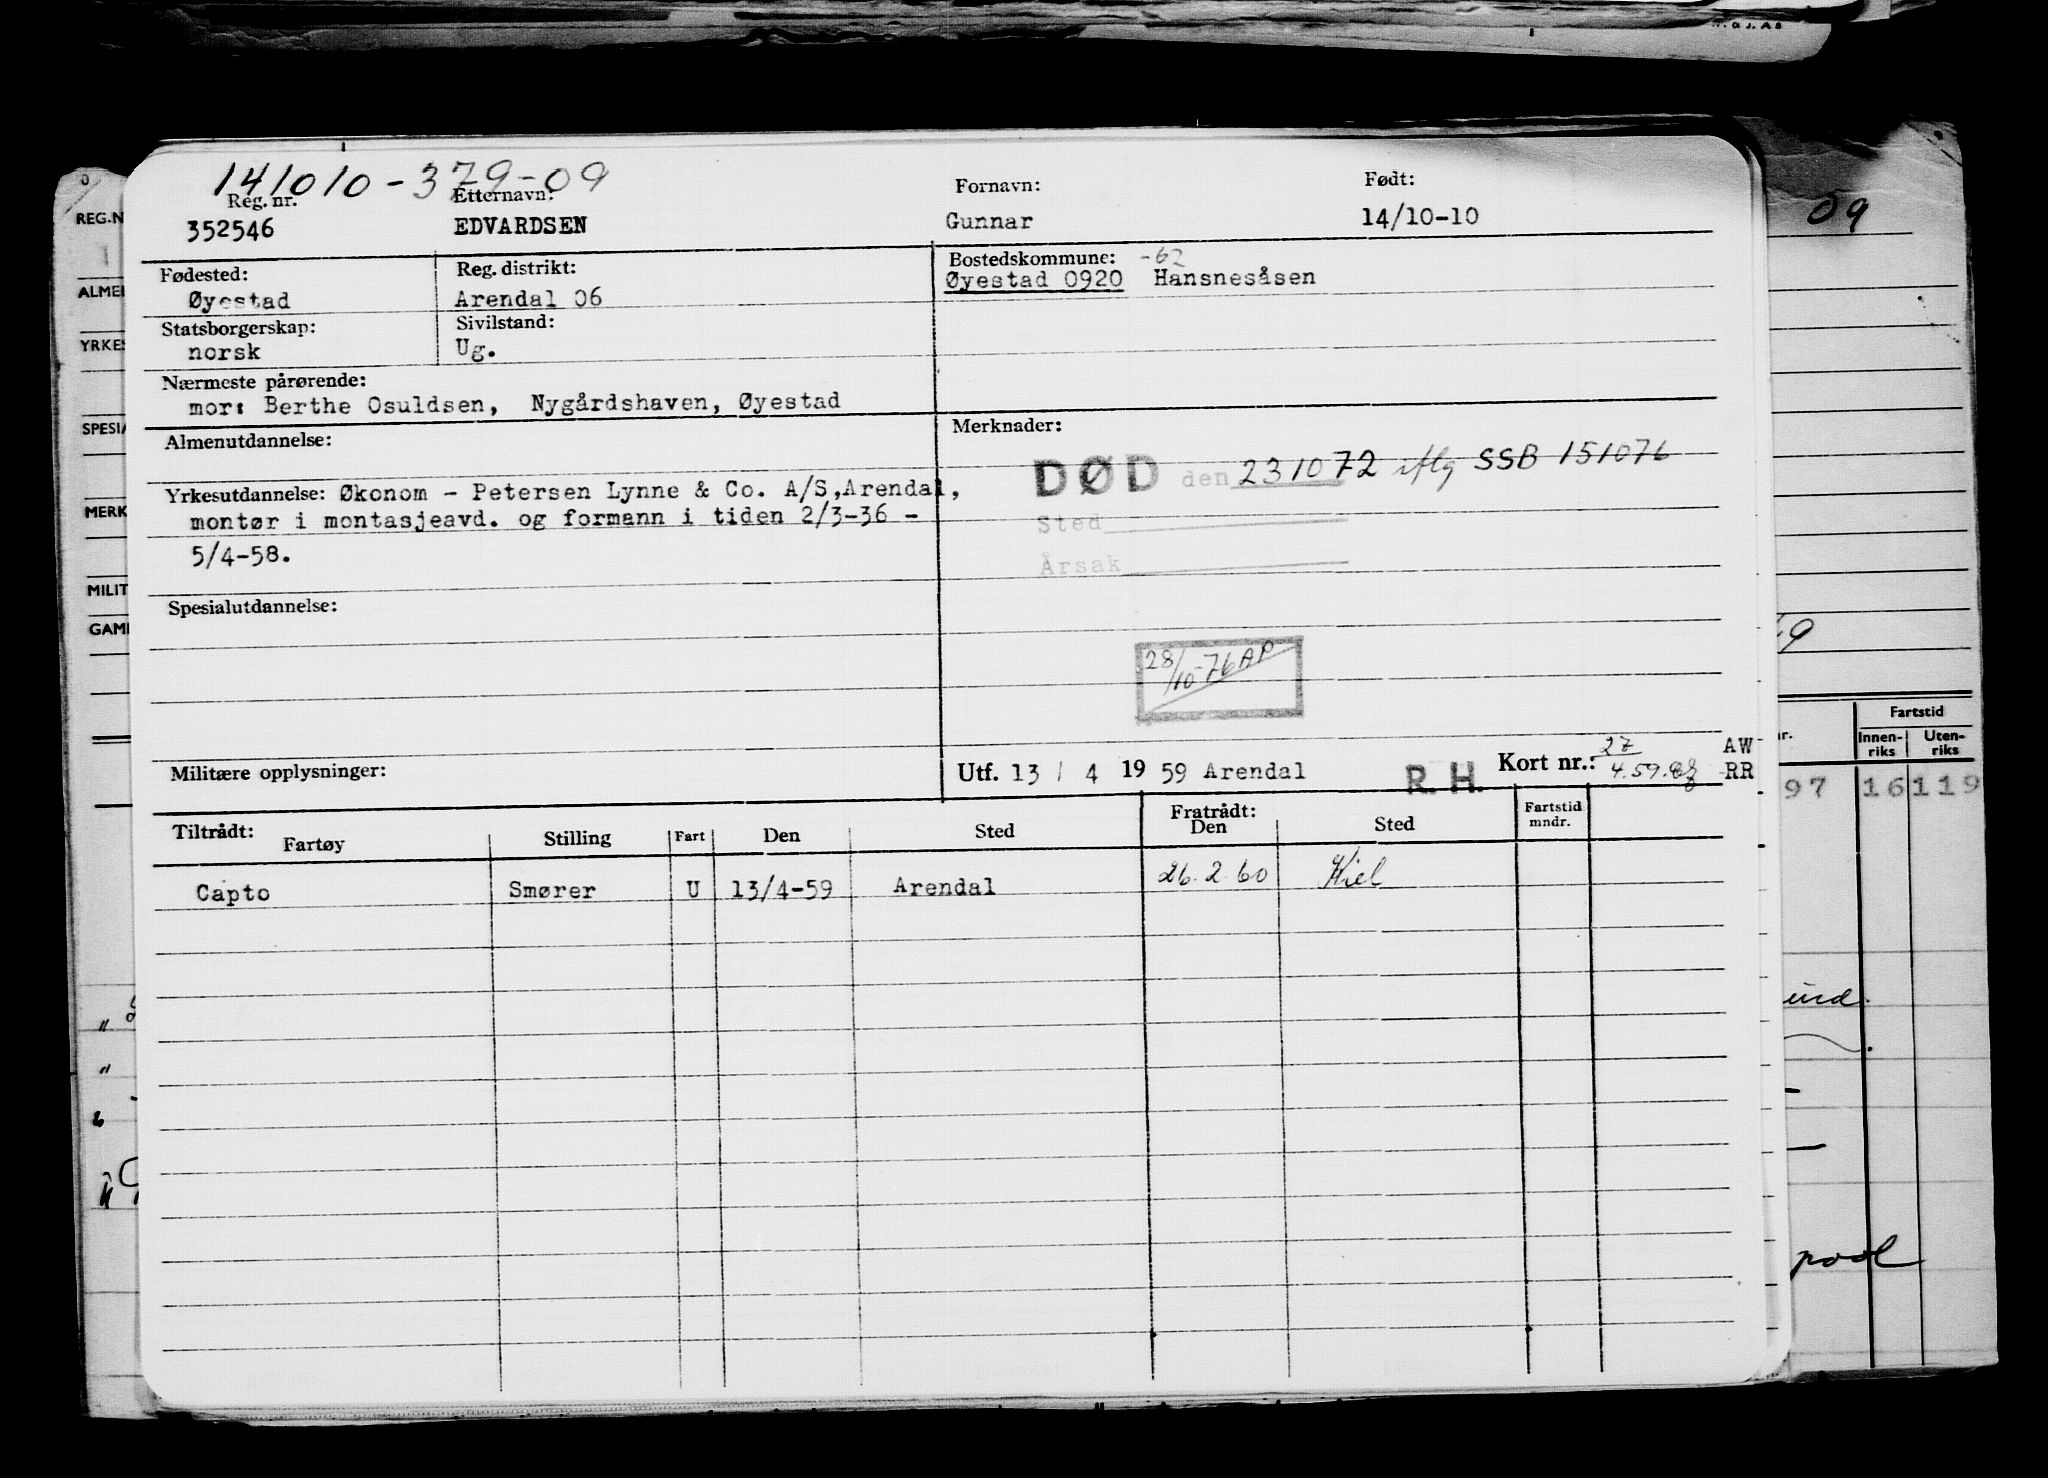 141010-379-09
Reg. nr. Etternavn: Fornavn: Født:
352546 EDVARDSEN Gunnar 14/10-10
Fødested: Reg. distrikt: Bostedskommune: -62
Øyestad Arendal 06 Øyestad 0920 Hansnesåsen
Statsborgerskap: Sivilstand:
norsk Ug.
Nærmeste pårørende:
mor: Berthe Osuldsen, Nygårdshaven, Øyestad
Almenutdannelse: Merknader:
DØD den 231072 iflg SSB 151076
Yrkesutdannelse: Økonom - Petersen Lynne & Co. A/S, Arendal,
montør i montasjeavd. og formann i tiden 2/3-36 -
Sted
5/4-58.
Årsak
Spesialutdannelse:
28/10-76 AP
Militære opplysninger: Utf. 13 / 4 19 59 Arendal R. H. Kort nr.: 27 4.59. AW
-RR
Tiltrådt: Fartøy Stilling Fart Den Sted Fratrådt: Den Sted Fartstid mndr.
Capto Smører U 13/4-59 Arendal 26.2.60 Kiel
REG.N
ALME
YRKES
SPESIA
MERK
MILIT
GAM
09
9
nr. Fartstid
Innen-riks Uten-riks
97 16 119
und.
pool